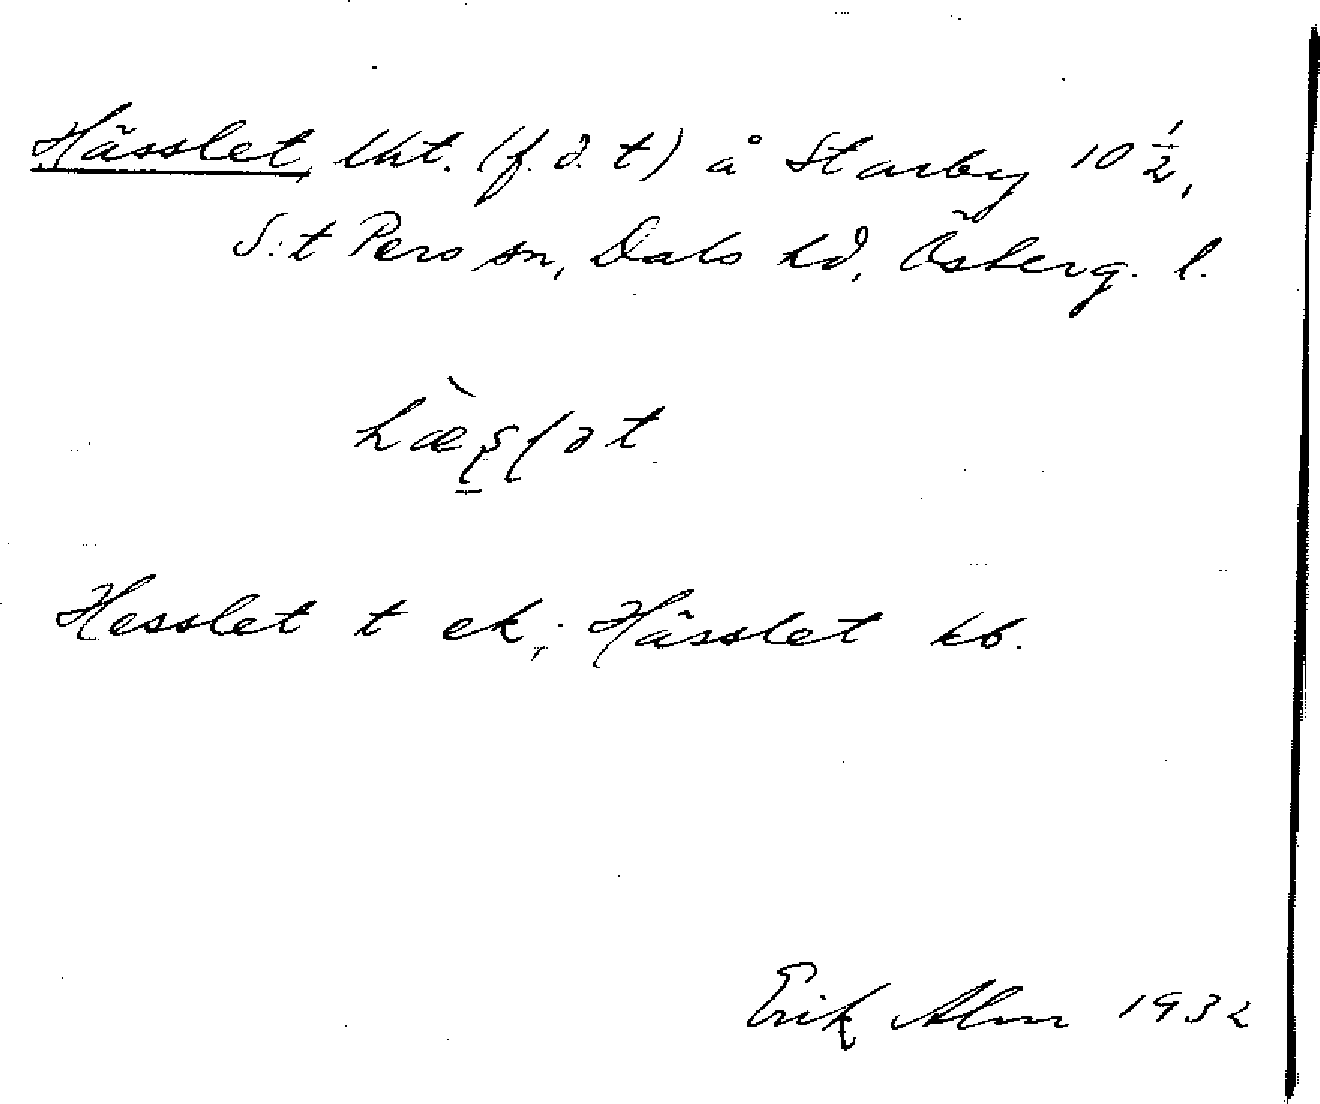 Hässlet, lht. (f. d. t) å Starby 10 1/2,
S:t Pers sn, Dals hd, Österg. l.
hæ̀s̱ʃət
Hesslet t ek; Hässlet kb.
Erik Alm 1932